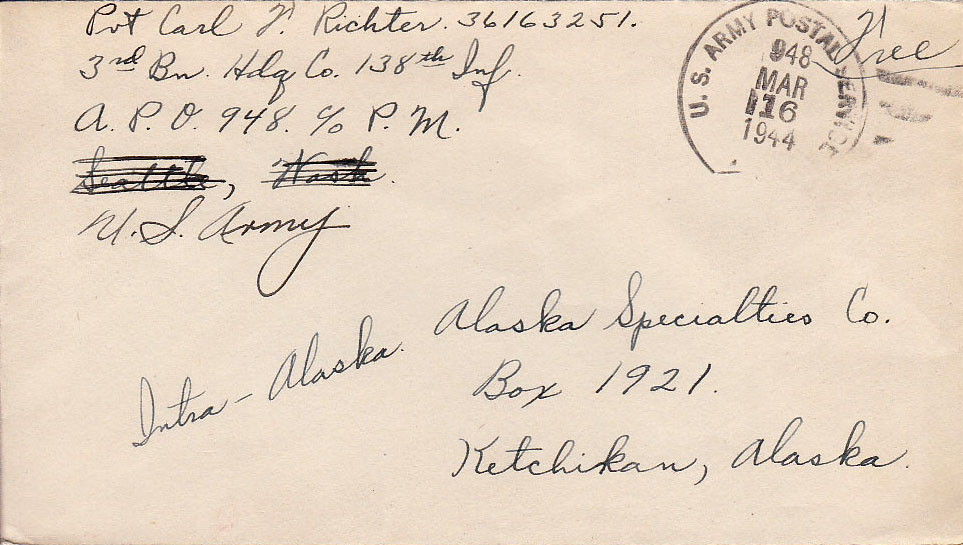 Pvt Carl F. Richter. 36163251.
3rd Bn. Hdq Co. 138th Inf.
A. P. O. 948. c/o P. M.
Seattle, Wash.
U. S. Army
U. S. ARMY POSTAL SERVICE
948
MAR
16
1944
Free
Intra - Alaska.
Alaska Specialties Co.
Box 1921.
Ketchikan, Alaska.